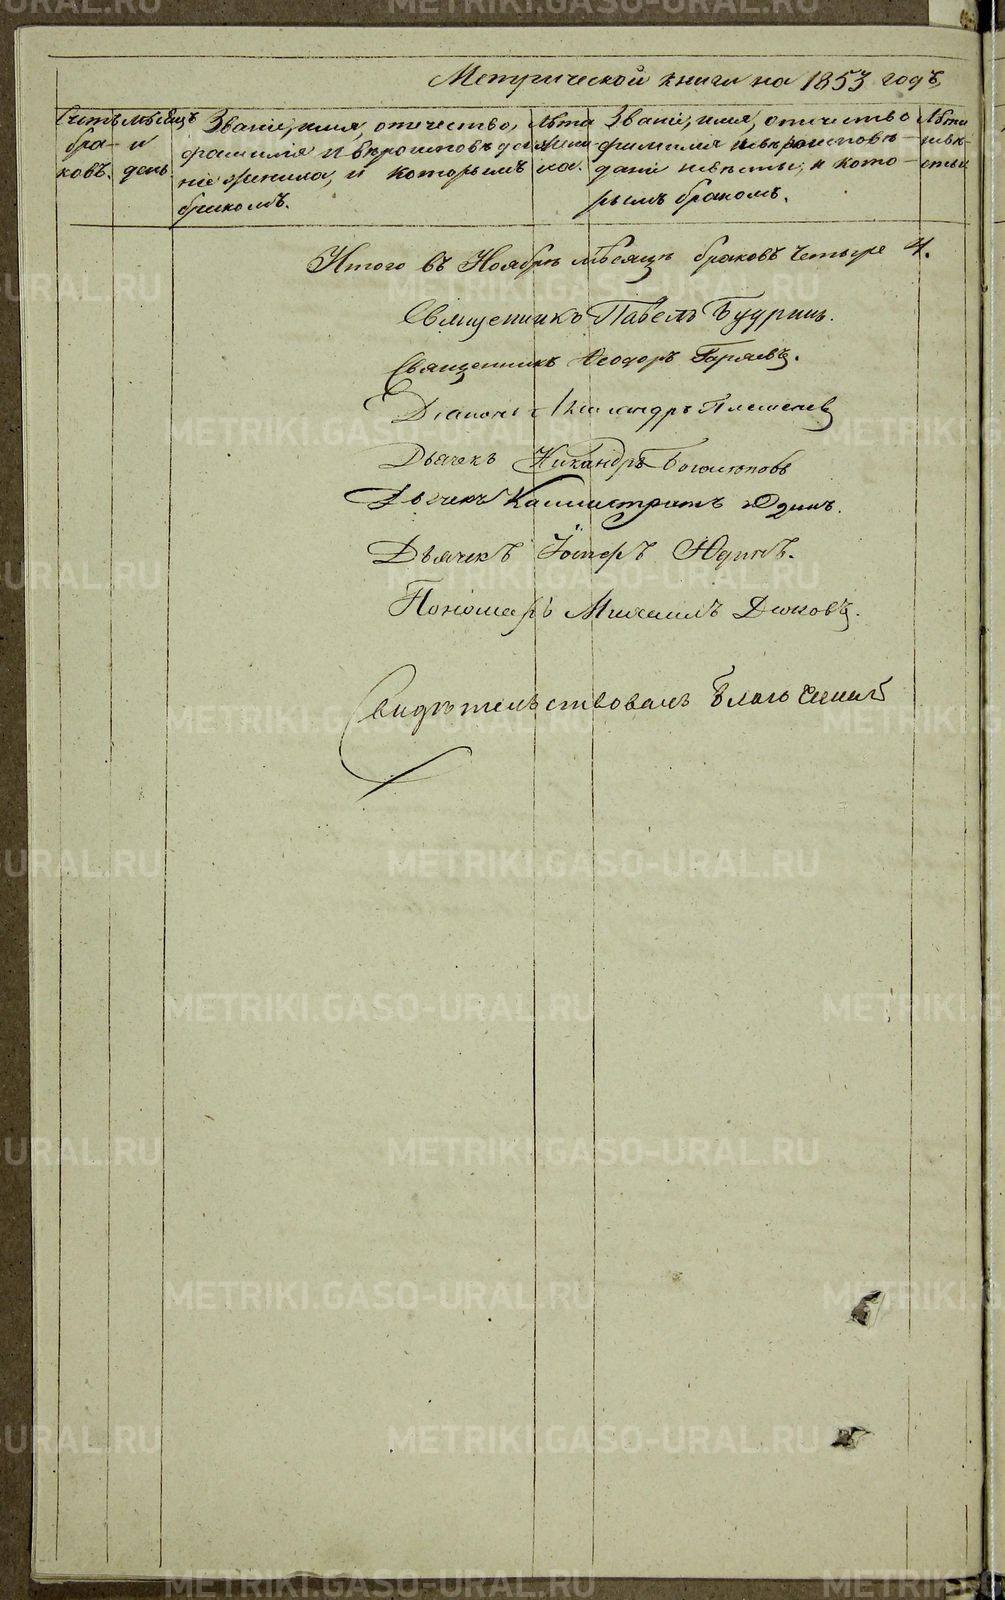 Метрической книги на 1853 годъ,
Счетъ бра- ковъ.
мѣсяцъ и день
Званіе, имя, отечество, фамилія и вѣроисповѣда- ніе жениха, и которымъ бракомъ.
Лѣта жени- ха.
Званіе, имя, отечество фамилія и вѣроисповѣ- даніе невѣсты, и кото- рымъ бракомъ.
Лѣта невѣ- сты
Итого въ Ноябрѣ мѣсяцѣ браковъ четыре 4.
Священникъ Павелъ Будринъ.
Священникъ Ѳеодоръ Гаряевъ.
Діаконъ Александръ
Дьячекъ Никандръ Богомоловъ
Дьячекъ Каллистратъ Юдинъ.
Дьячекъ Юдинъ.
Пономарь Михаилъ Дюковъ.
Свидѣтельствовалъ Благочинный
METRIKI.GASO-URAL.RU